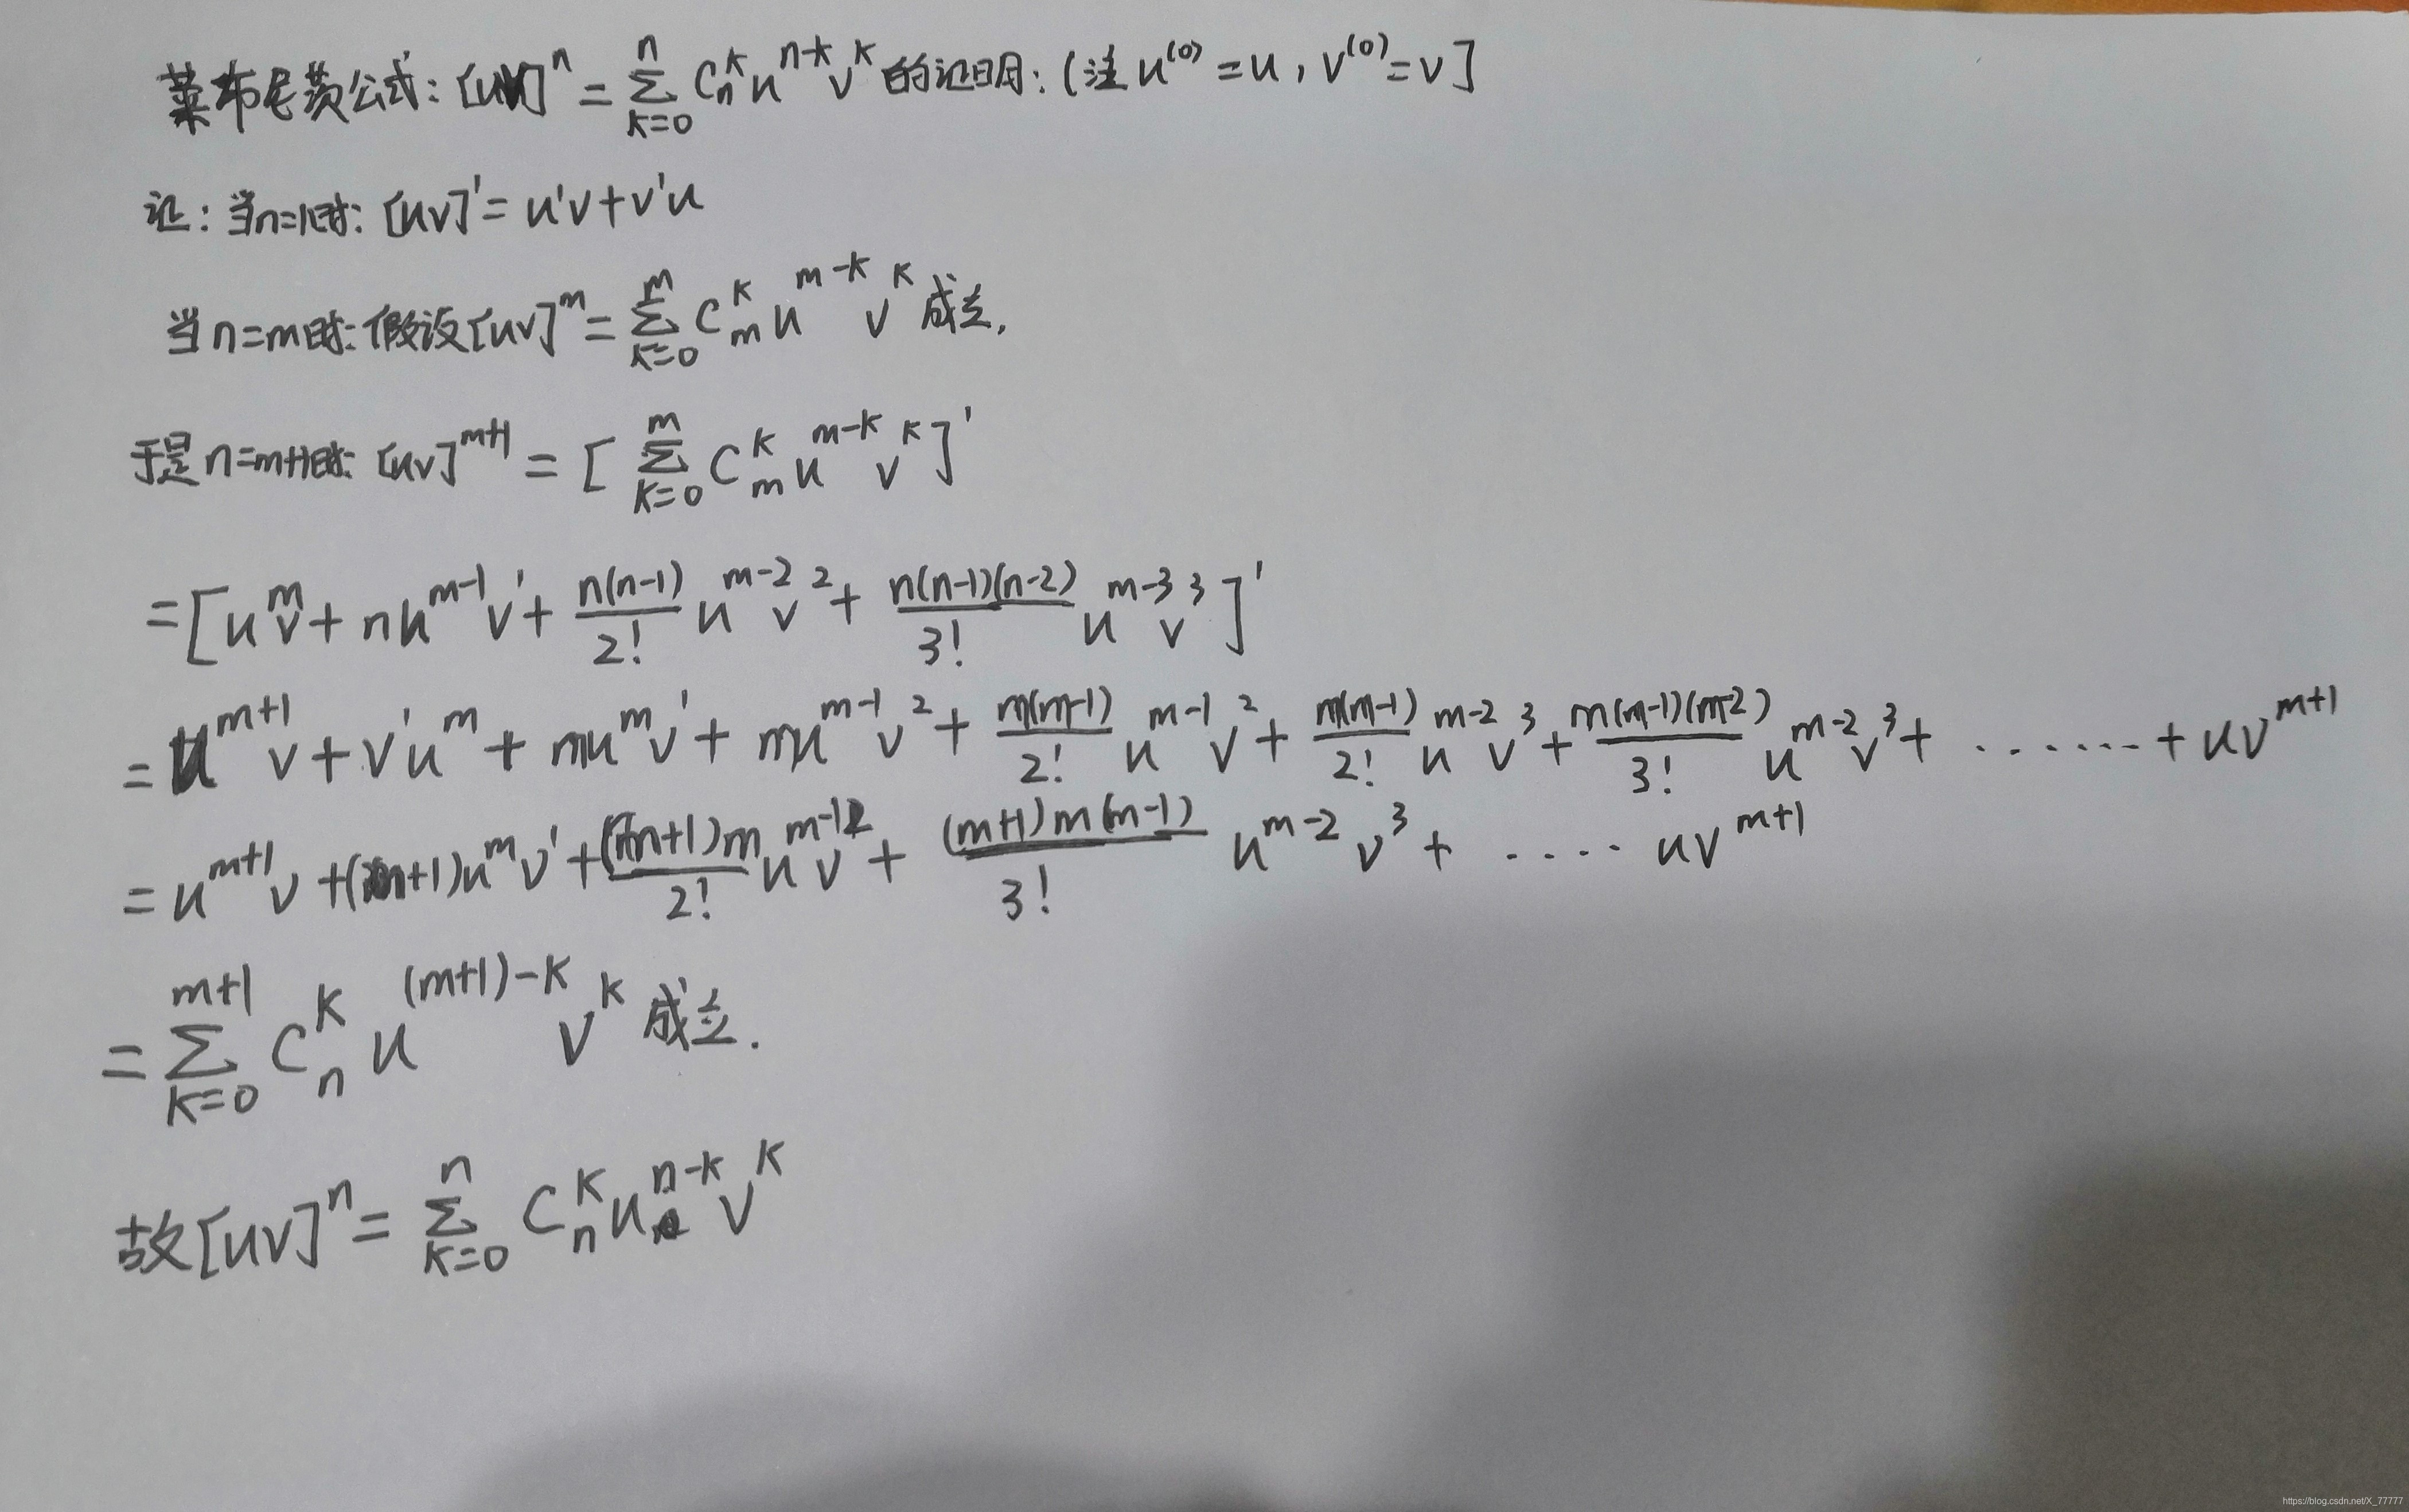 莱布尼茨公式：[uv]^n = ∑_{k=0}^{n} C_n^k u^{n-k} v^k 的证明：(注 u^{(0)} = u，v^{(0)} = v]
证：当n=1时：[uv]' = u'v+v'u
当n=m时：假设[uv]^m = ∑_{k=0}^{m} C_m^k u^{m-k} v^k 成立，
于是n=m+1时：[uv]^{m+1} = [∑_{k=0}^{m} C_m^k u^{m-k} v^k]'
=[u^m v + nu^{m-1}v' + \frac{n(n-1)}{2!} u^{m-2} v^2 + \frac{n(n-1)(n-2)}{3!} u^{m-3} v^3]'
= u^{m+1} v + v'u^m + mu^m v' + mu^{m-1} v^2 + \frac{m(m-1)}{2!} u^{m-1} v^2 + \frac{m(m-1)}{2!} u^{m-2} v^3 + \frac{m(m-1)(m-2)}{3!} u^{m-2} v^3 + ······· + uv^{m+1}
= u^{m+1} v + (m+1)u^m v' + \frac{(m+1)m}{2!} u^{m-1} v^2 + \frac{(m+1)m(m-1)}{3!} u^{m-2} v^3 + ···· uv^{m+1}
= ∑_{k=0}^{m+1} C_n^k u^{(m+1)-k} v^k 成立.
故[uv]^n = ∑_{k=0}^{n} C_n^k u^{n-k} v^k
https://blog.csdn.net/X_77777